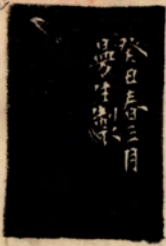 癸丑春三月
曼生製